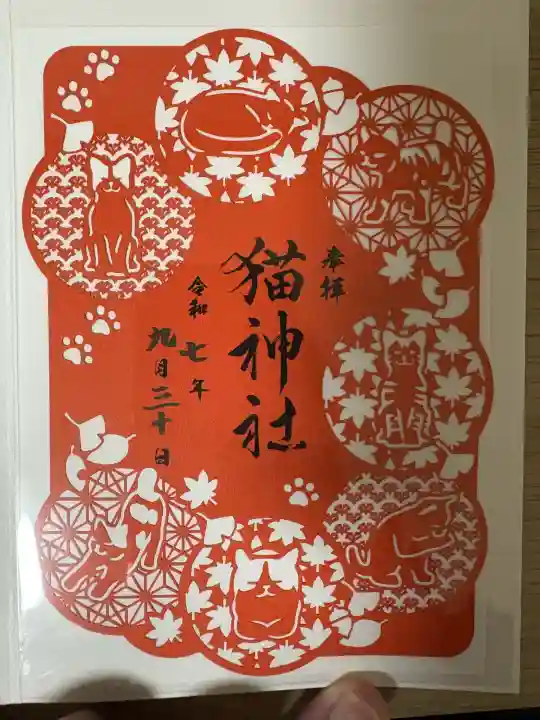 奉拝
猫神社
令和七年
九月三十日